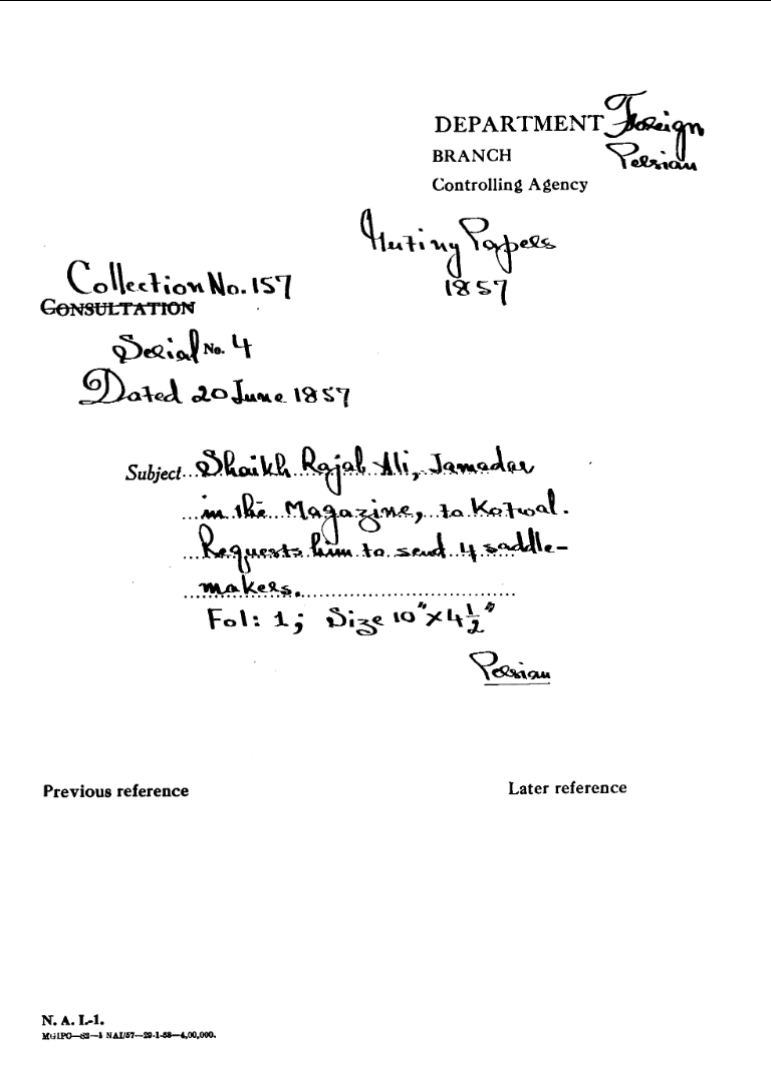 DEPARTMENT Foreign
BRANCH Persian
Controlling Agency
Mutiny Papers
1857
Collection No. 157
CONSULTATION
Serial No. 4
Dated 20 June 1857
Subject Shaikh Rajab Ali, Jamadar
in the Magazine, to Kotwal.
Requests him to send 4 saddle-
makers.
Fol: 1; Size 10"x4½"
Persian
Previous reference
Later reference
N. A. I.-1.
MGIPC—S2—1 NAI/57—29-1-58—4,00,000.